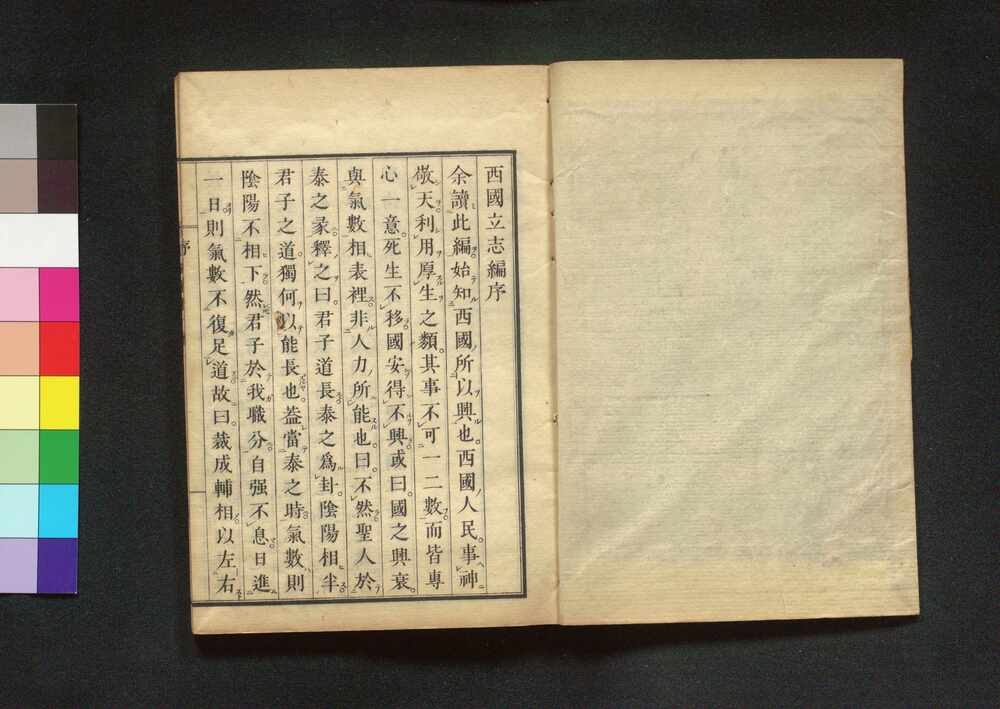 西國立志編序
余讀此編始知西國所以興也西國人民。事神
敬天利用厚生之類。其事不可一二數而皆專
心一意。死生不移國安得不興或曰。國之興衰。
與氣數相表裡非人力所能也曰。不然聖人於
泰之彖釋之曰。君子道長泰之爲卦。陰陽相半
君子之道。獨何以能長也。盖當泰之時氣數則
陰陽不相下。然君子於我職分自强不息日進
一日。則氣數不復足道故曰。裁成輔相以左右
序